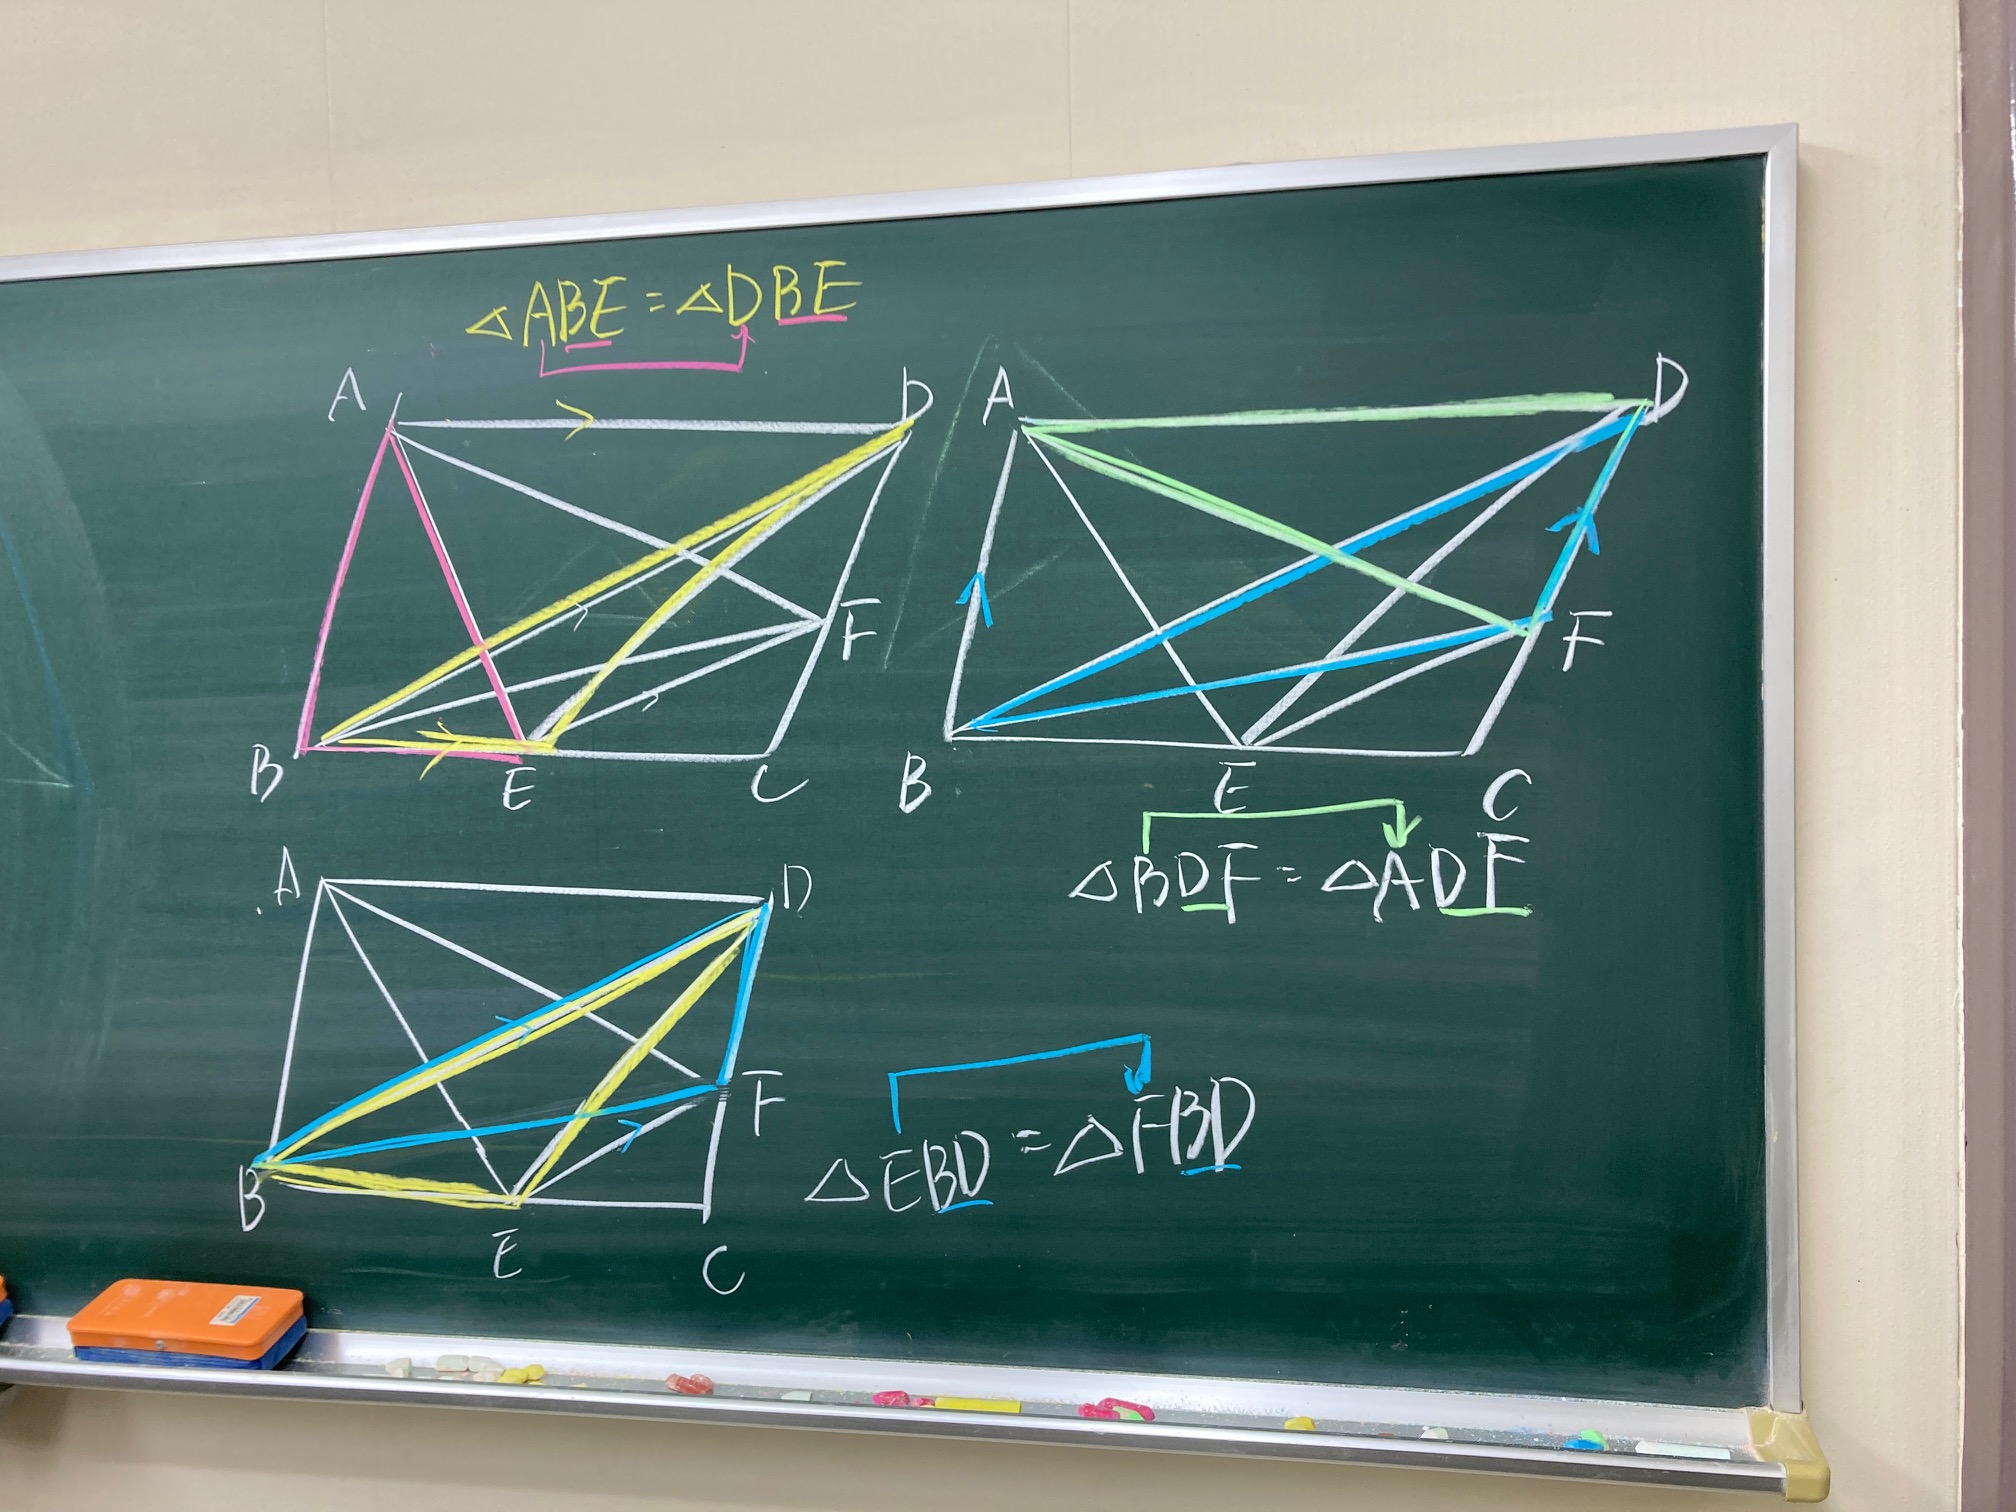 △ABE=△DBE
A D
F
B E C
A D
F
B E C
△BDF=△ADF
A D
F
B
E C
△EBD=△FBD